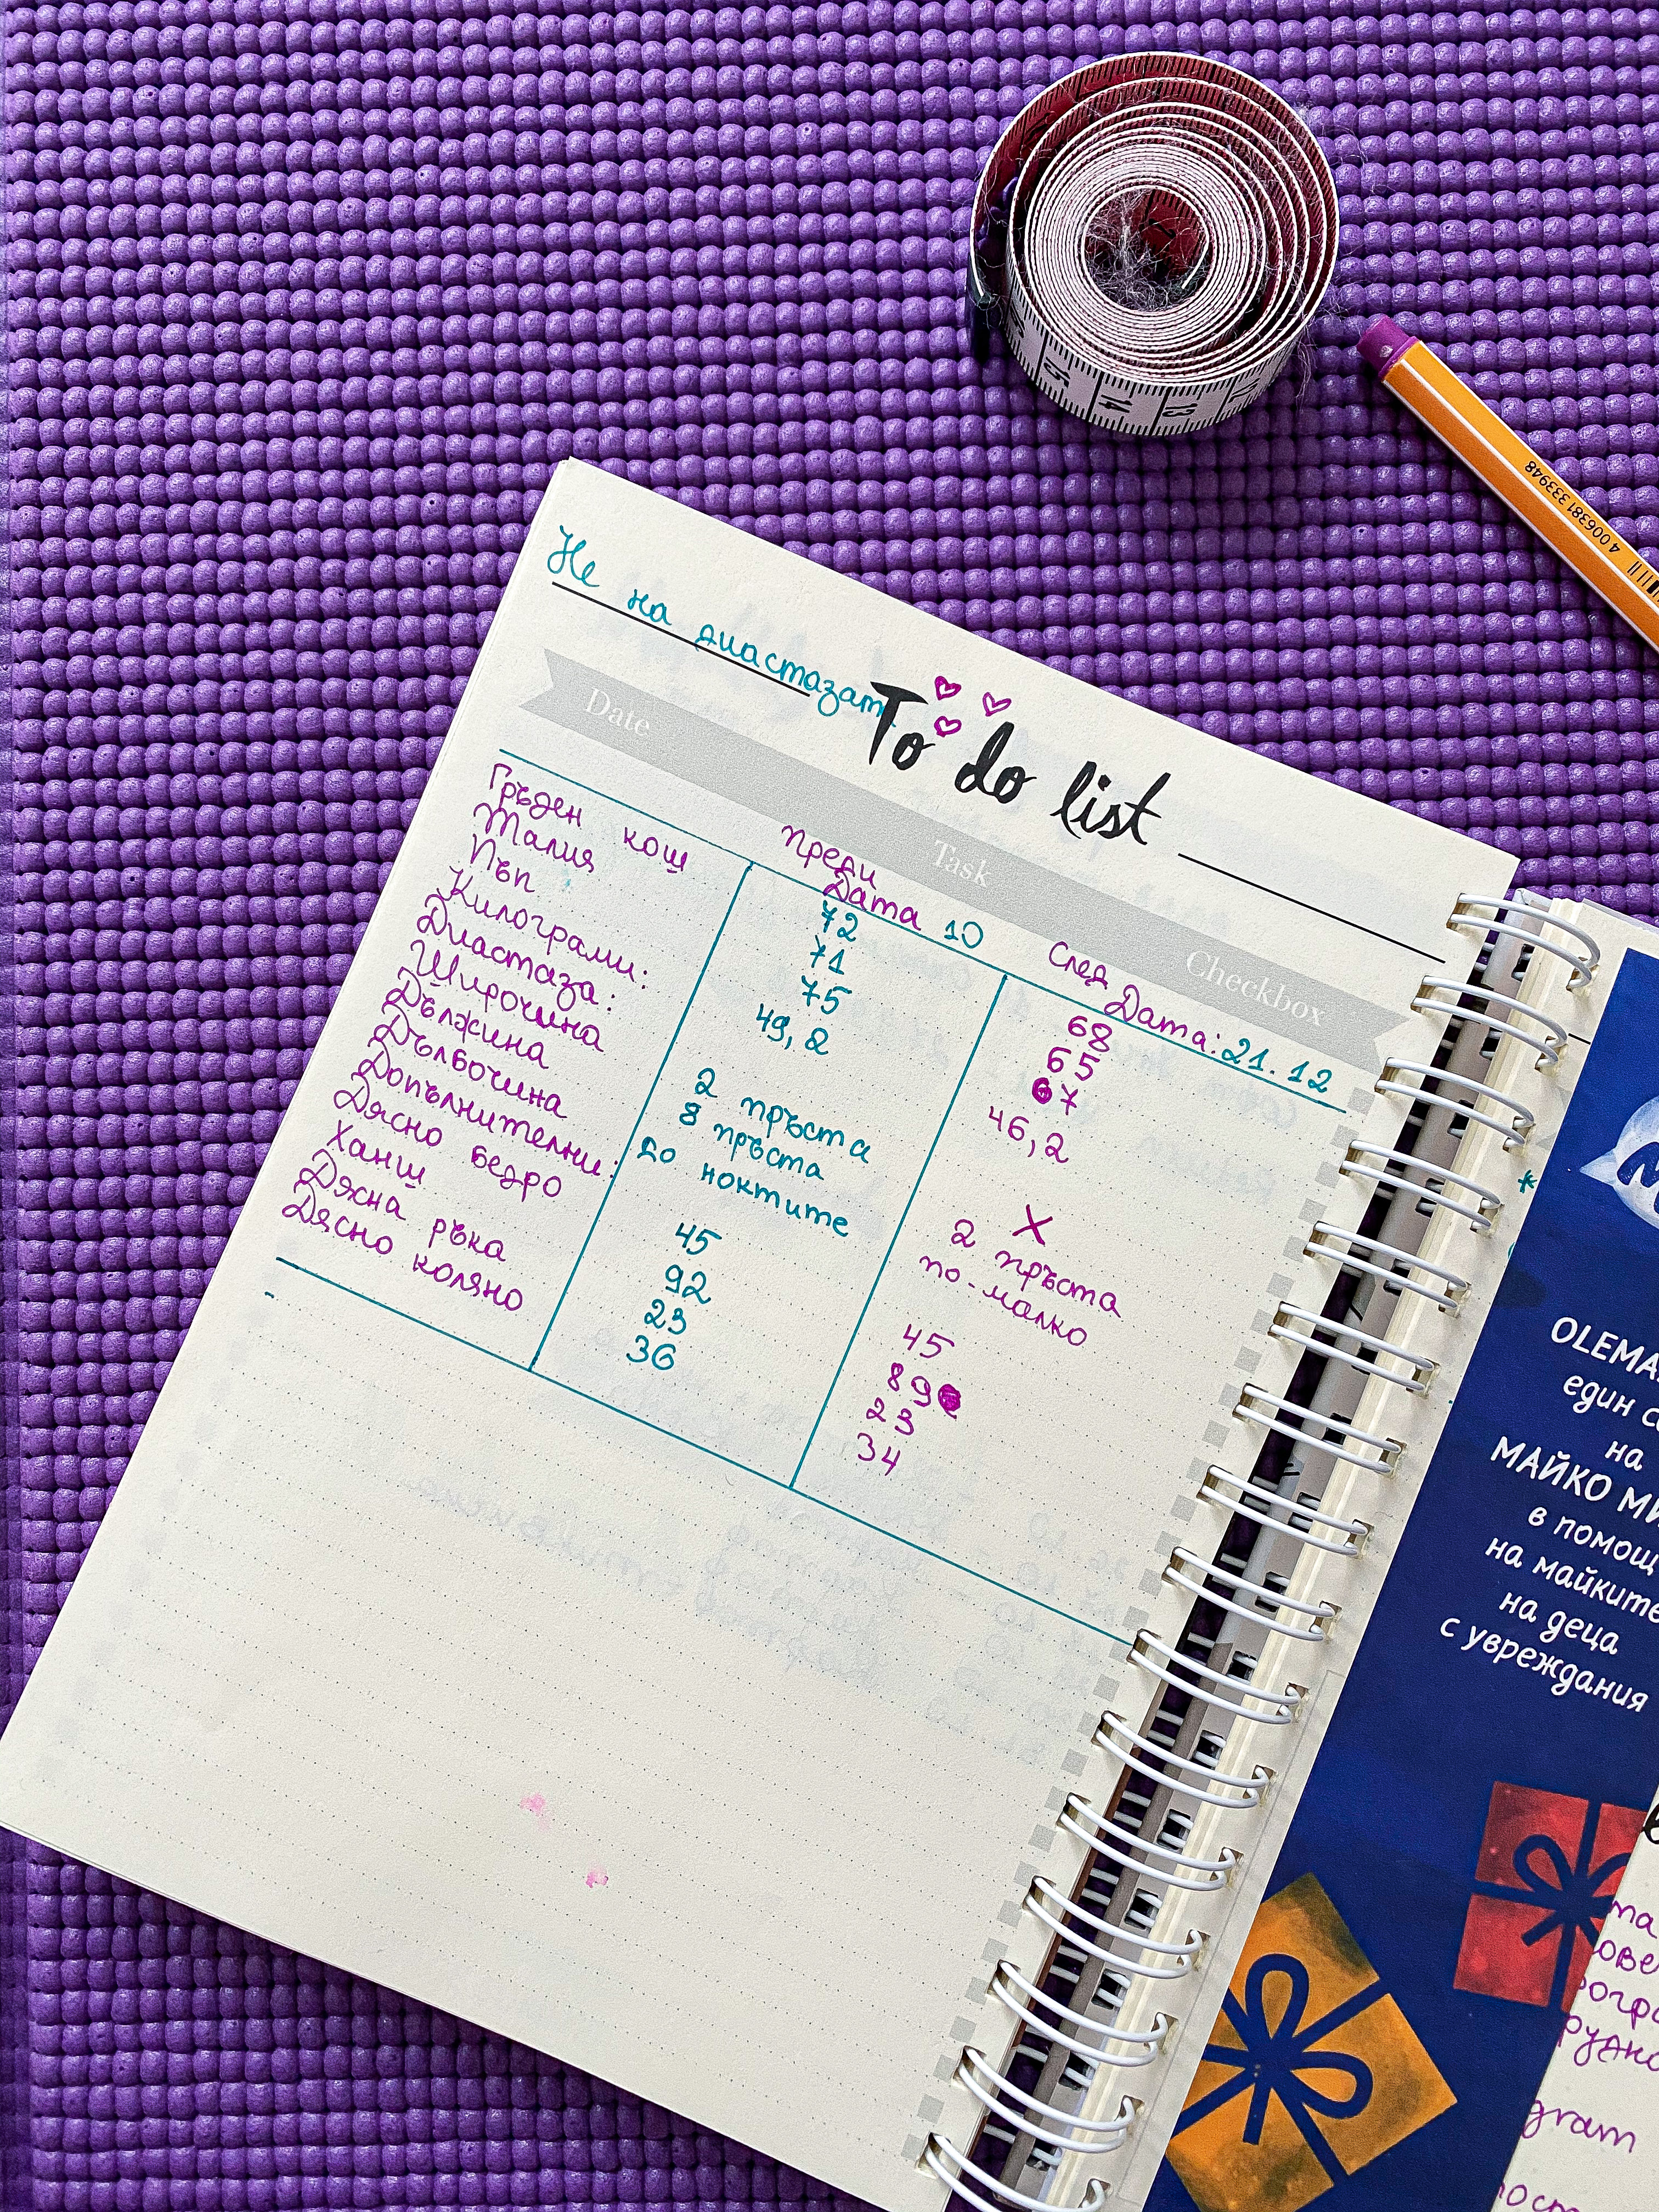 Не на диастазат
To do list
Date Task Checkbox
Преди
Дата 10
След
Дата: 21.12
Гръден кош 72 68
Талия 71 65
Пъп 75 67
Килограми: 49,2 46,2
Диастаза:
Широчина 2 пръста X
Дължина 8 пръста 2 пръста
Дълбочина до ноктите по-малко
Допълнителни:
Дясно бедро 45 45
Ханш 92 89
Дясна ръка 23 23
Дясно коляно 36 34
4 006381 333948
15 14 13
един
на
МАЙКО
в помощ
на майките
на деца
с увреждания